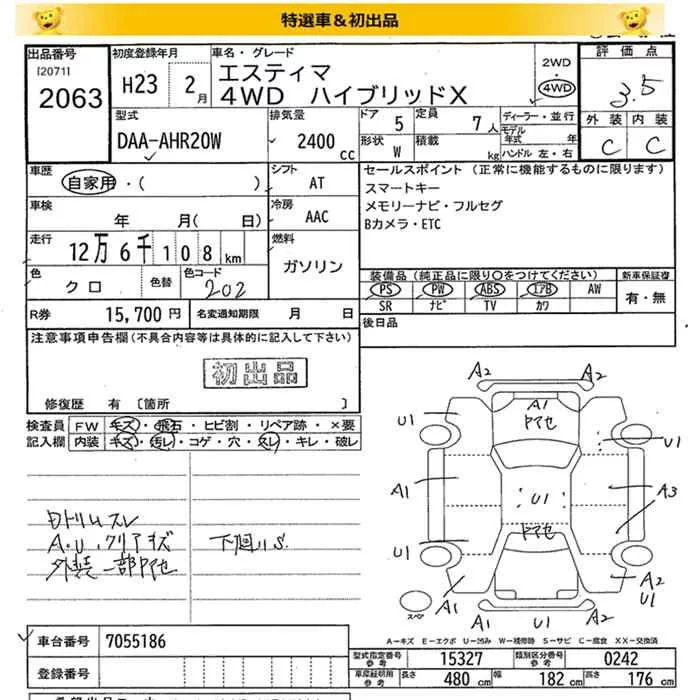 特選車&初出品
出品番号 初度登録年月 車名・グレード 評価点
[2071] エスティマ 2WD
2063 H23 2月 4WD ハイブリッドX 4WD 3.5
型式 排気量 ドア 5 定員 7人 ディーラー・並行 外装 内装
モデル年式 年
DAA-AHR20W 2400cc 形状 W 積載 kg ハンドル 左・右 C C
車歴 シフト セールスポイント (正常に機能するものに限ります)
自家用・( ) AT スマートキー
車検 冷房 メモリーナビ・フルセグ
年 月( 日) AAC Bカメラ・ETC
走行 燃料
12万6千108km ガソリン
色 色替 色コード 装備品 (純正品に限り〇をつけてください) 新車保証書
クロ 202 PS PW ABS エアB AW 有・無
SR ナビ TV カワ
R券 15,700円 名変通知期限 月 日 後日品
注意事項申告欄(不具合内容等は具体的に記入して下さい)
初出品
修復歴 有 〔箇所 〕
検査員 FW キズ・飛石・ヒビ割・リペア跡・×要
記入欄 内装 キズ・汚レ・コゲ・穴・スレ・キレ・破レ
A2 A2
U1 A1
ヤケセ
U1
A1 U1 A3
ドアセ
U1
A1 A2
U1
A1 U1 A2
スペア
内トリムスレ
A・U、クリアキズ 下廻りS
A-キズ E-エクボ U-凹み W-補修跡 S-サビ C-腐食 XX-交換済
車台番号 7055186
型式指定番号 参考 15327 類別区分番号 参考 0242
登録番号
車庫証明用 参考 長さ 480 cm 幅 182 cm 高さ 176 cm